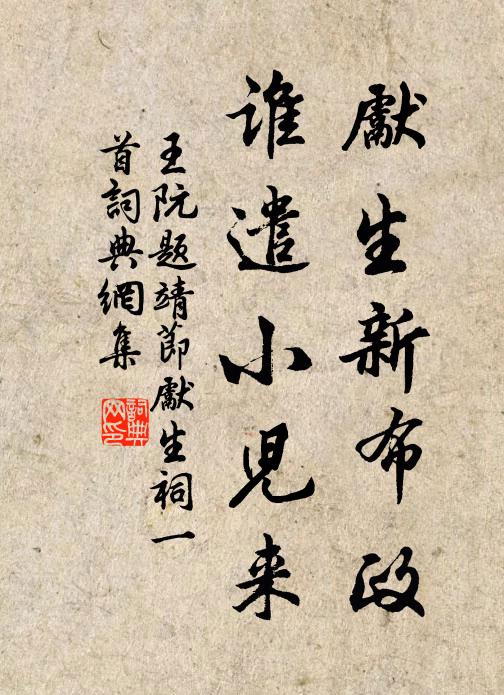 獻生新布政
谁遣小兒来
王阮题靖節獻生祠一
首詞典網集
詞典网印